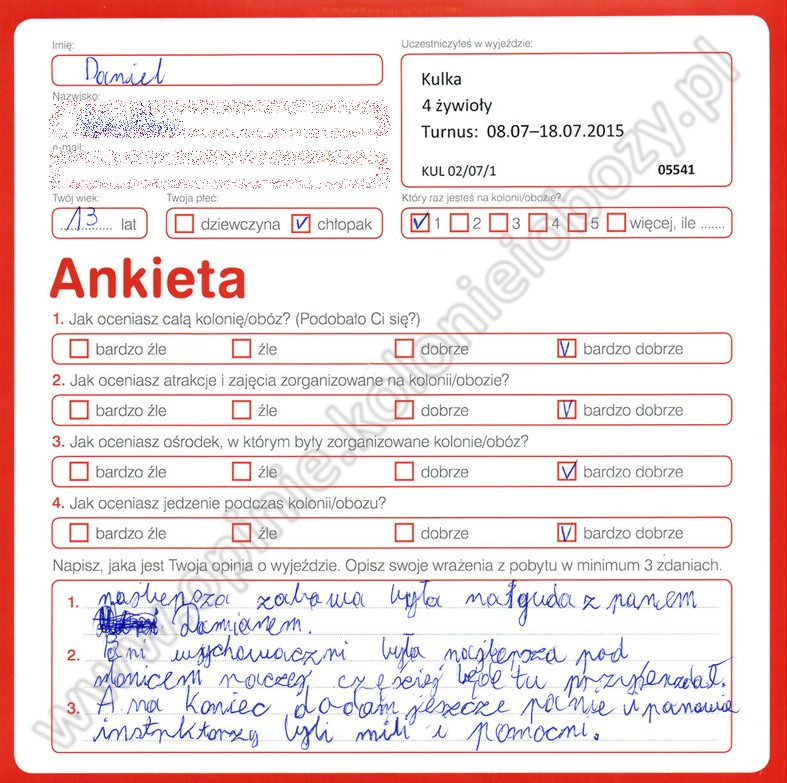 Imię:
Daniel
Uczestniczyłeś w wyjeździe:
Kulka
4 żywioły
Turnus: 08.07–18.07.2015
KUL 02/07/1 05541
Nazwisko:
e-mail:
Twój wiek:
13 lat
Twoja płeć:
dziewczyna chłopak
Który raz jesteś na kolonii/obozie?
1 2 3 4 5 więcej, ile .......
Ankieta
1. Jak oceniasz całą kolonię/obóz? (Podobało Ci się?)
bardzo źle źle dobrze bardzo dobrze
2. Jak oceniasz atrakcje i zajęcia zorganizowane na kolonii/obozie?
bardzo źle źle dobrze bardzo dobrze
3. Jak oceniasz ośrodek, w którym były zorganizowane kolonie/obóz?
bardzo źle źle dobrze bardzo dobrze
4. Jak oceniasz jedzenie podczas kolonii/obozu?
bardzo źle źle dobrze bardzo dobrze
Napisz, jaka jest Twoja opinia o wyjeździe. Opisz swoje wrażenia z pobytu w minimum 3 zdaniach.
1. najlepsza zabawa była z panem
Damianem.
2. Pani była najlepsza pod
częściej będe tu
3. A na koniec dodam jeszcze panie i panowie
byli mili i pomocni.
www.opinie.kolonieiobozy.pl